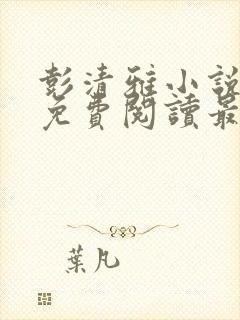 彭清雅小說
免費閱讀最
葉凡